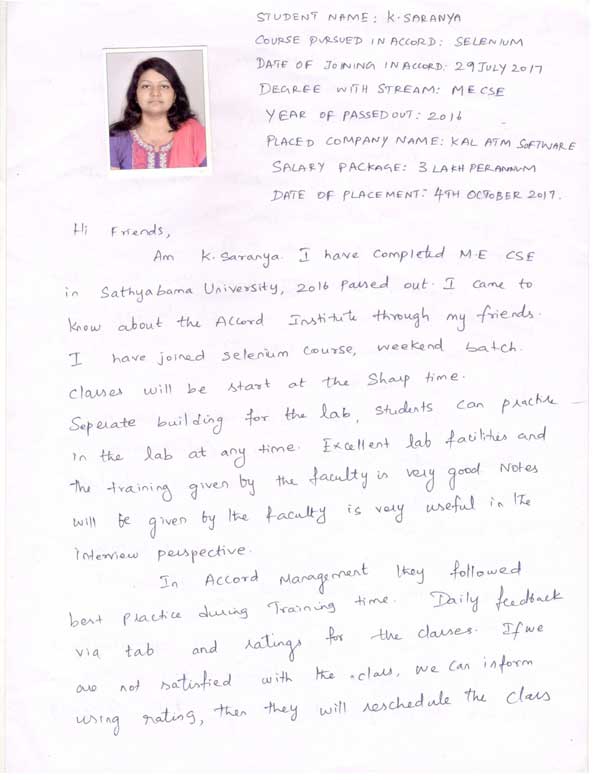 STUDENT NAME: K.SARANYA
COURSE PURSUED IN ACCORD: SELENIUM
DATE OF JOINING IN ACCORD: 29 JULY 2017
DEGREE WITH STREAM: ME CSE
YEAR OF PASSED OUT: 2016
PLACED COMPANY NAME: KAL ATM SOFTWARE
SALARY PACKAGE: 3 LAKH PER ANNUM
DATE OF PLACEMENT: 4TH OCTOBER 2017.
Hi Friends,
Am K.Saranya. I have completed M.E CSE
in Sathyabama University, 2016 passed out. I came to
know about the Accord Institute through my friends.
I have joined selenium course, weekend batch.
classes will be start at the Sharp time.
Seperate building for the lab, students can practise
in the lab at any time. Excellent lab facilities and
the training given by the faculty is very good Notes
will be given by the faculty is very useful in the
interview perspective.
In Accord Management they followed
best practice during Training time. Daily feedback
via tab and ratings for the classes. If we
are not satisfied with the class, we can inform
using rating, then they will reschedule the class